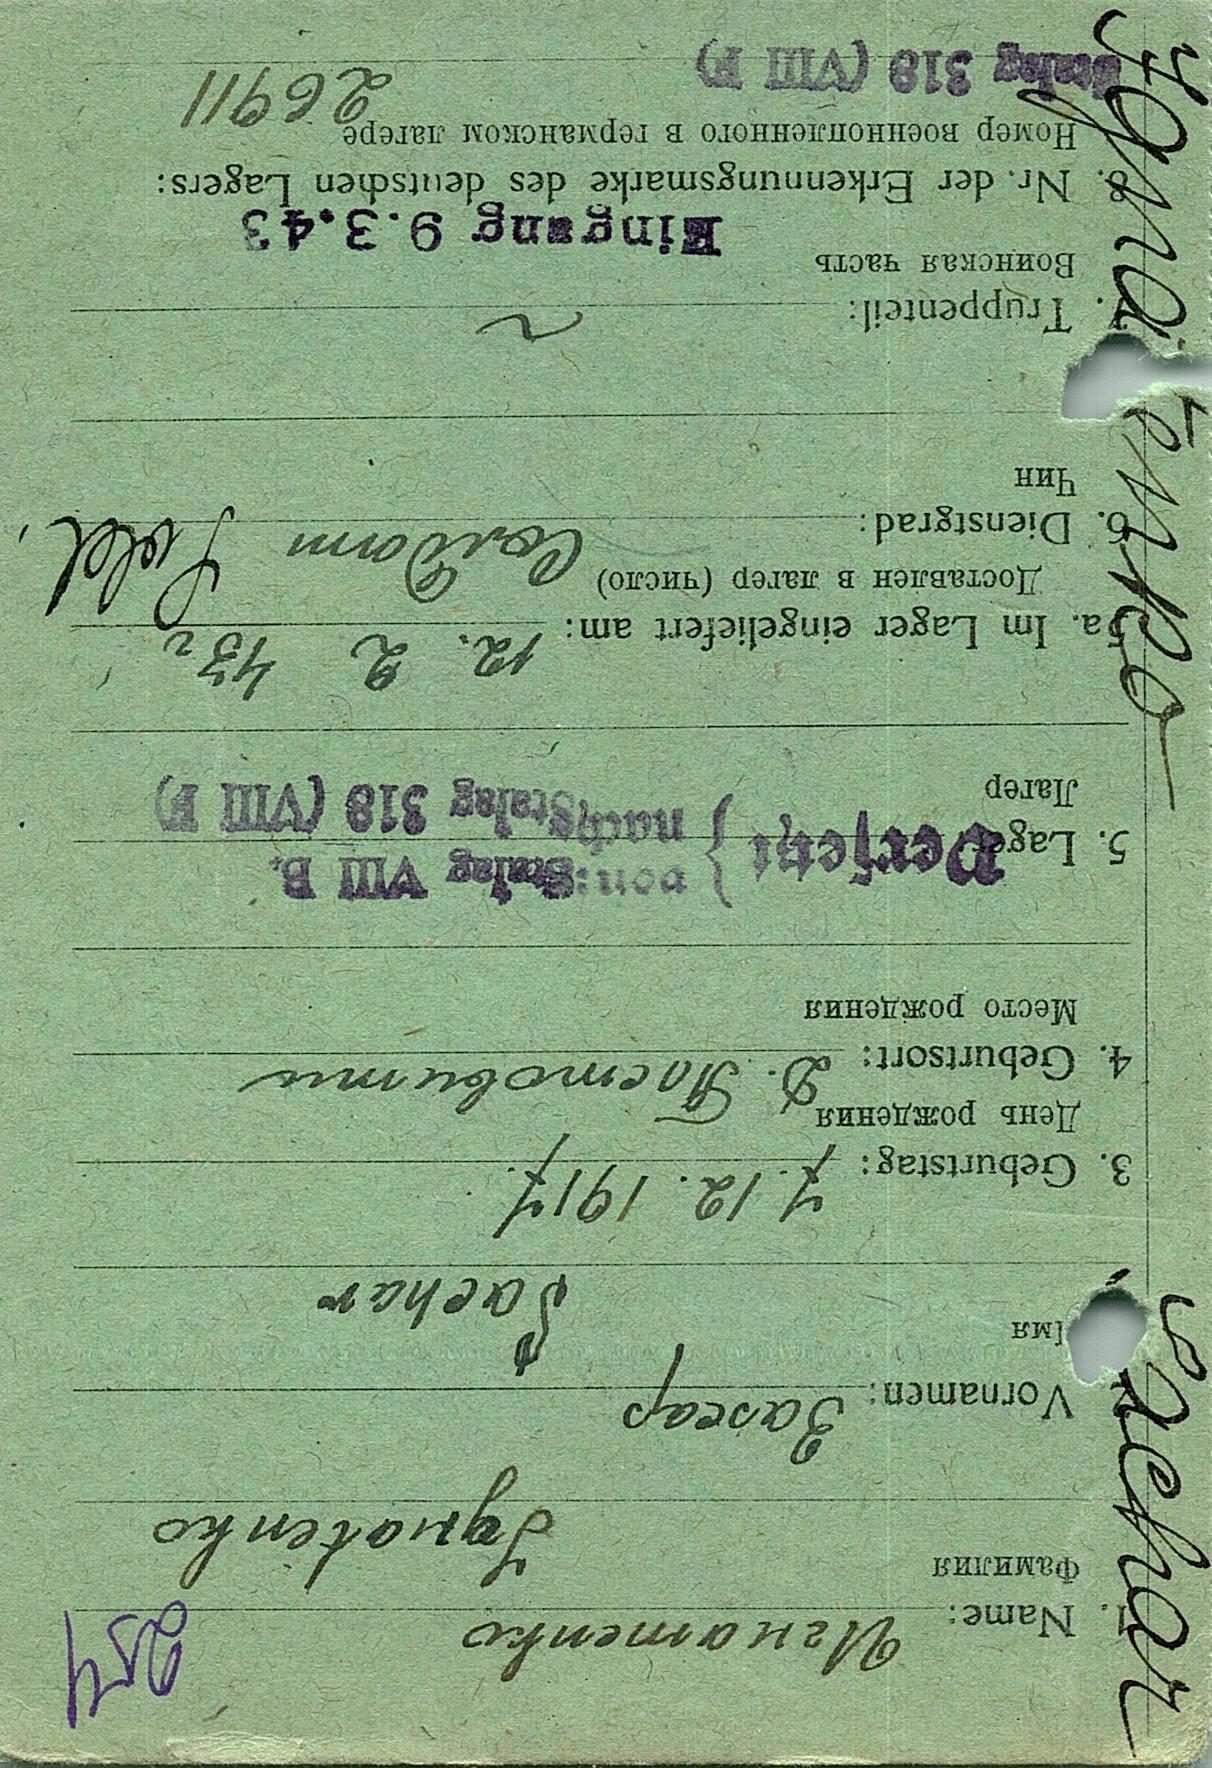 254
1. Name: Игнатенко
Фамилия
Ignatenko
Vornamen: Захар
Имя
Sachar
3. Geburtstag: 7.12.1917.
День рождения
4. Geburtsort: Д.
Место рождения
Versetzt } von: Stalag VIII B.
nach: Stalag 318 (VIII F)
5. Lager
Лагер
5a. Im Lager eingeliefert am: 12. 2 43 г
Доставлен в лагер (число)
6. Dienstgrad: Солдат Sold.
Чин
7. Truppenteil: ~
Воинская часть
Eingang 9.3.43
8. Nr. der Erkennungsmarke des deutschen Lagers:
Номер военнопленного в германском лагере
26911
Stalag 318 (VIII F)
Ignatenko
Sachar